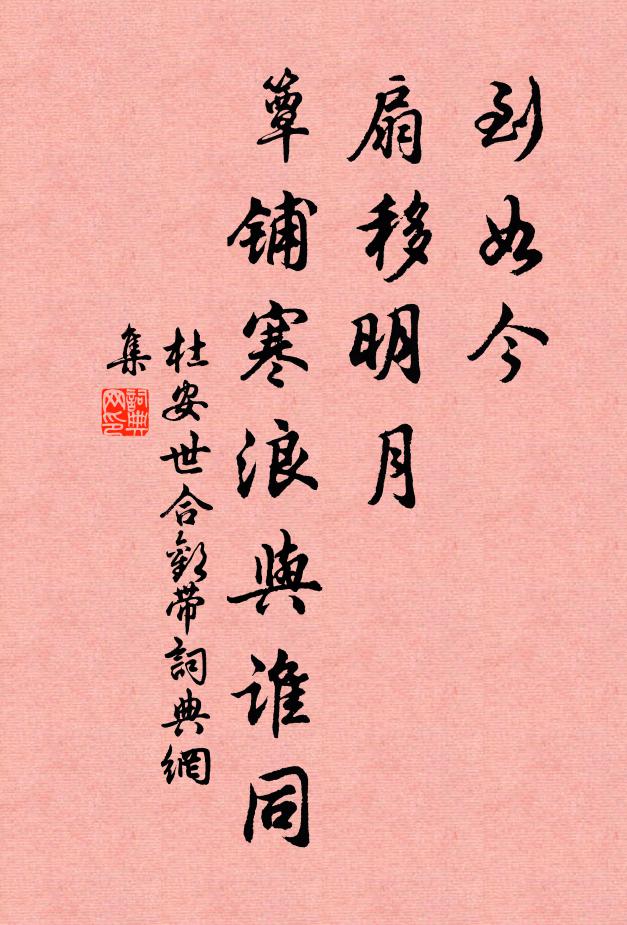 到如今
扇移明月
簟铺寒浪與谁同
杜安世合歡带詞典網
集
詞典
网印